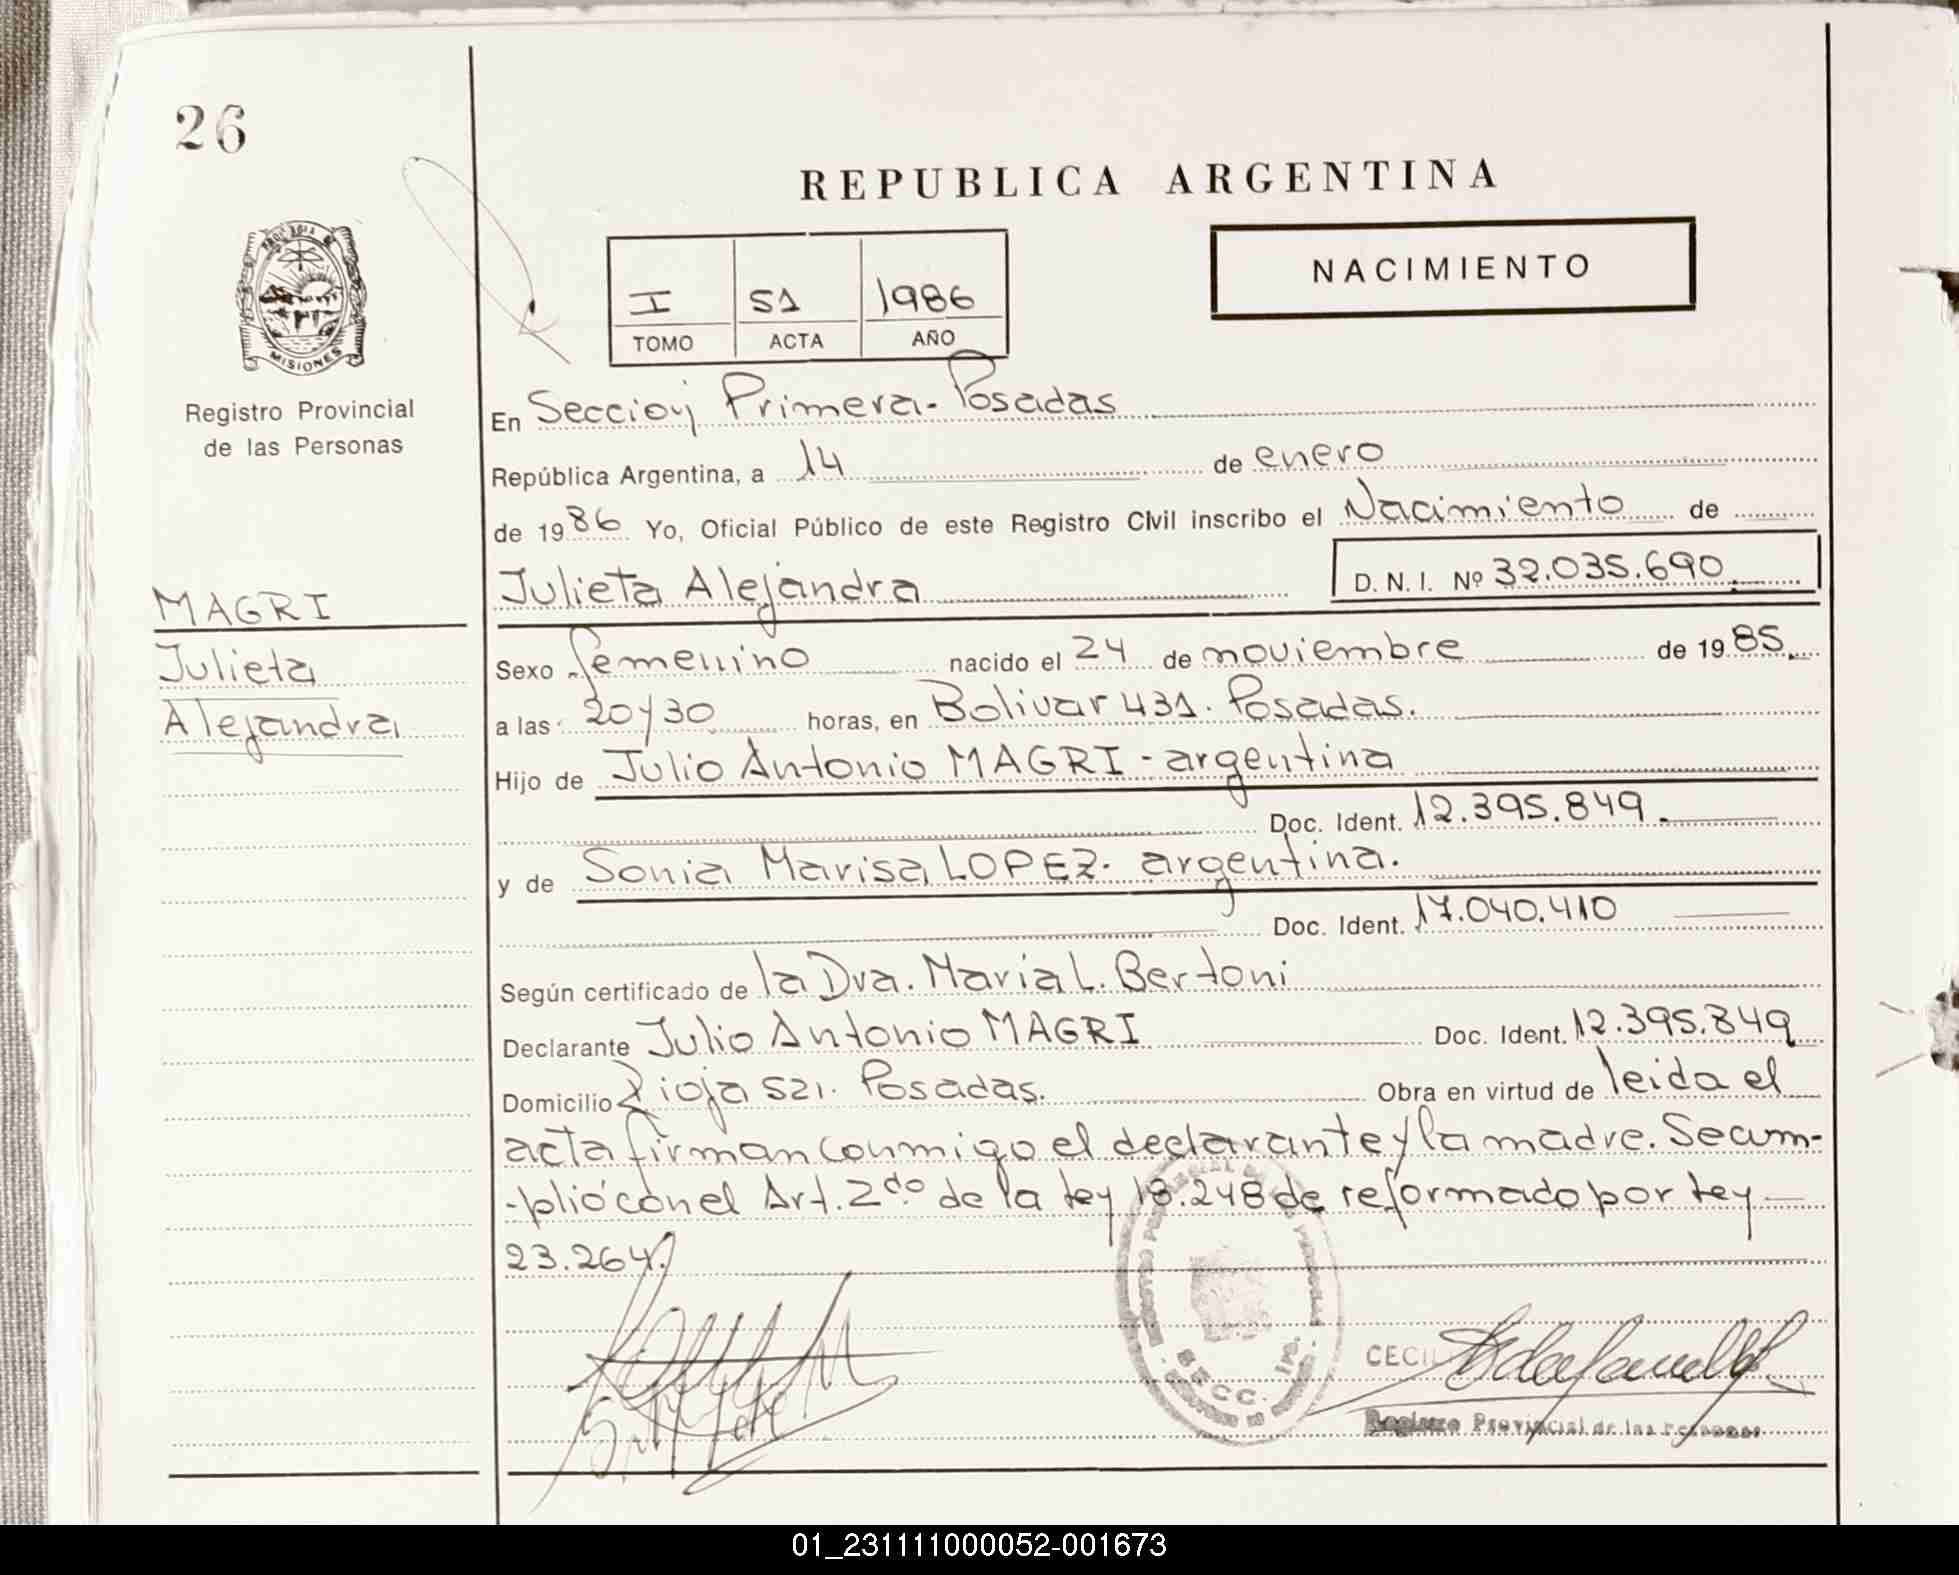 26
REPUBLICA ARGENTINA
NACIMIENTO
I 51 1986
TOMO ACTA AÑO
MISIONES
Registro Provincial
de las Personas
MAGRI
Julieta
Alejandra
En Seccion Primera. Posadas
República Argentina, a 14 de enero
de 1986 Yo, Oficial Público de este Registro Civil inscribo el Nacimiento de
Julieta Alejandra D. N. I. Nº 32.035.690
Sexo femenino nacido el 24 de noviembre de 1985.
a las 20 y 30 horas, en Bolivar 431. Posadas.
Hijo de Julio Antonio MAGRI - argentina
Doc. Ident. 12.395.849.
y de Sonia Marisa LOPEZ. argentina.
Doc. Ident. 17.040.410
Según certificado de la Dra. Maria L. Bertoni
Declarante Julio Antonio MAGRI Doc. Ident. 12.395.849
Domicilio Rioja 521. Posadas. Obra en virtud de leida el
acta firman conmigo el declarante y la madre. Se cum-
-plió con el Art. 2do de la Ley 18.248 de reformado por Ley
23.264.
CECIL
Registro Provincial de las Personas
01_231111000052-001673